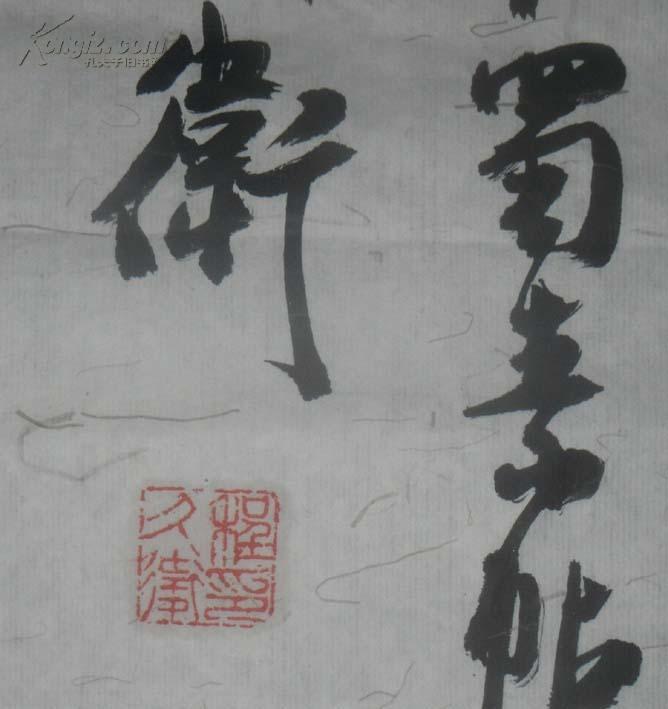 Kongfz.com
孔夫子旧书网
蜀素帖
衛
程印
久衛